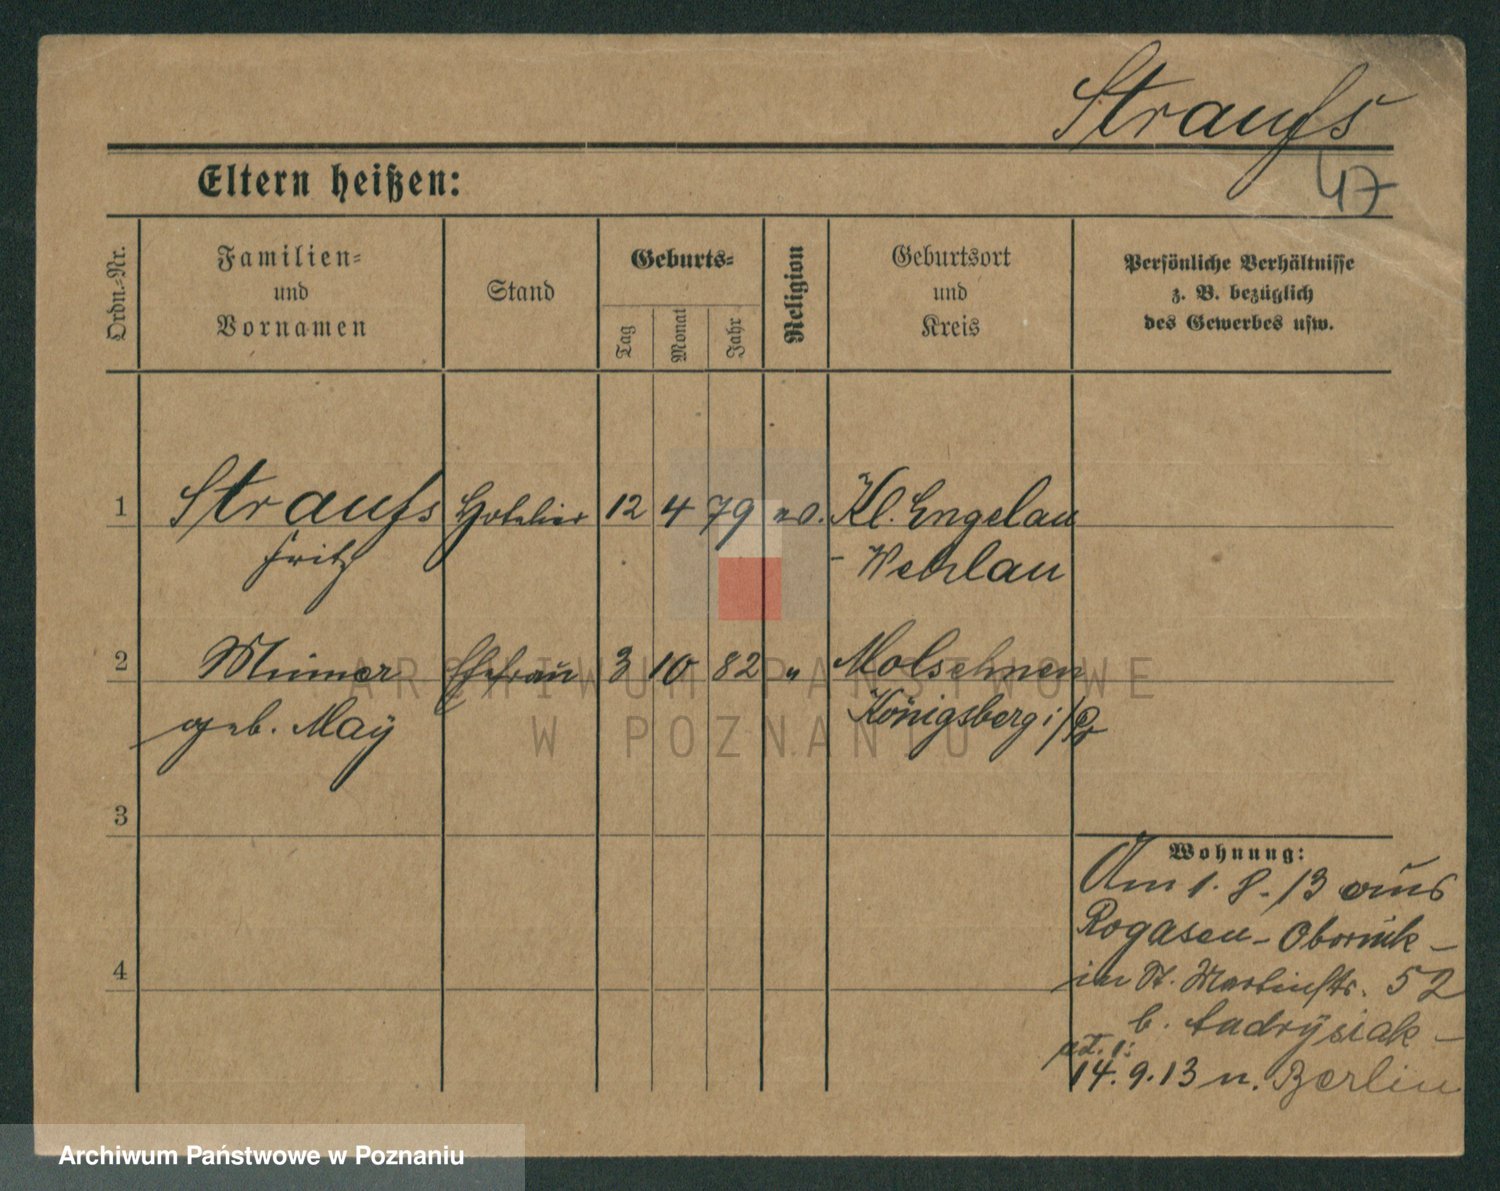 Straufs
47
Eltern heißen:
Ordn.-Nr.
Familien-
und
Vornamen
Stand
Geburts-
Tag
Monat
Jahr
Religion
Geburtsort
und
Kreis
Persönliche Verhältnisse
z. B. bezüglich
des Gewerbes usw.
1 Straufs Hotelier 12 4 79 Kl. Engelau
Fritz - Wehlau
2 Ehefrau 3 10 82 " Molsehnen
geb. Maÿ Königsberg i/Pr
3
4
Wohnung:
Am 1. 8. 13 aus
Rogasen - Obornik -
in St. Martinstr. 52
b.
14. 9. 13 n. Berlin
ARCHIWUM PAŃSTWOWE
W POZNANIU
Archiwum Państwowe w Poznaniu